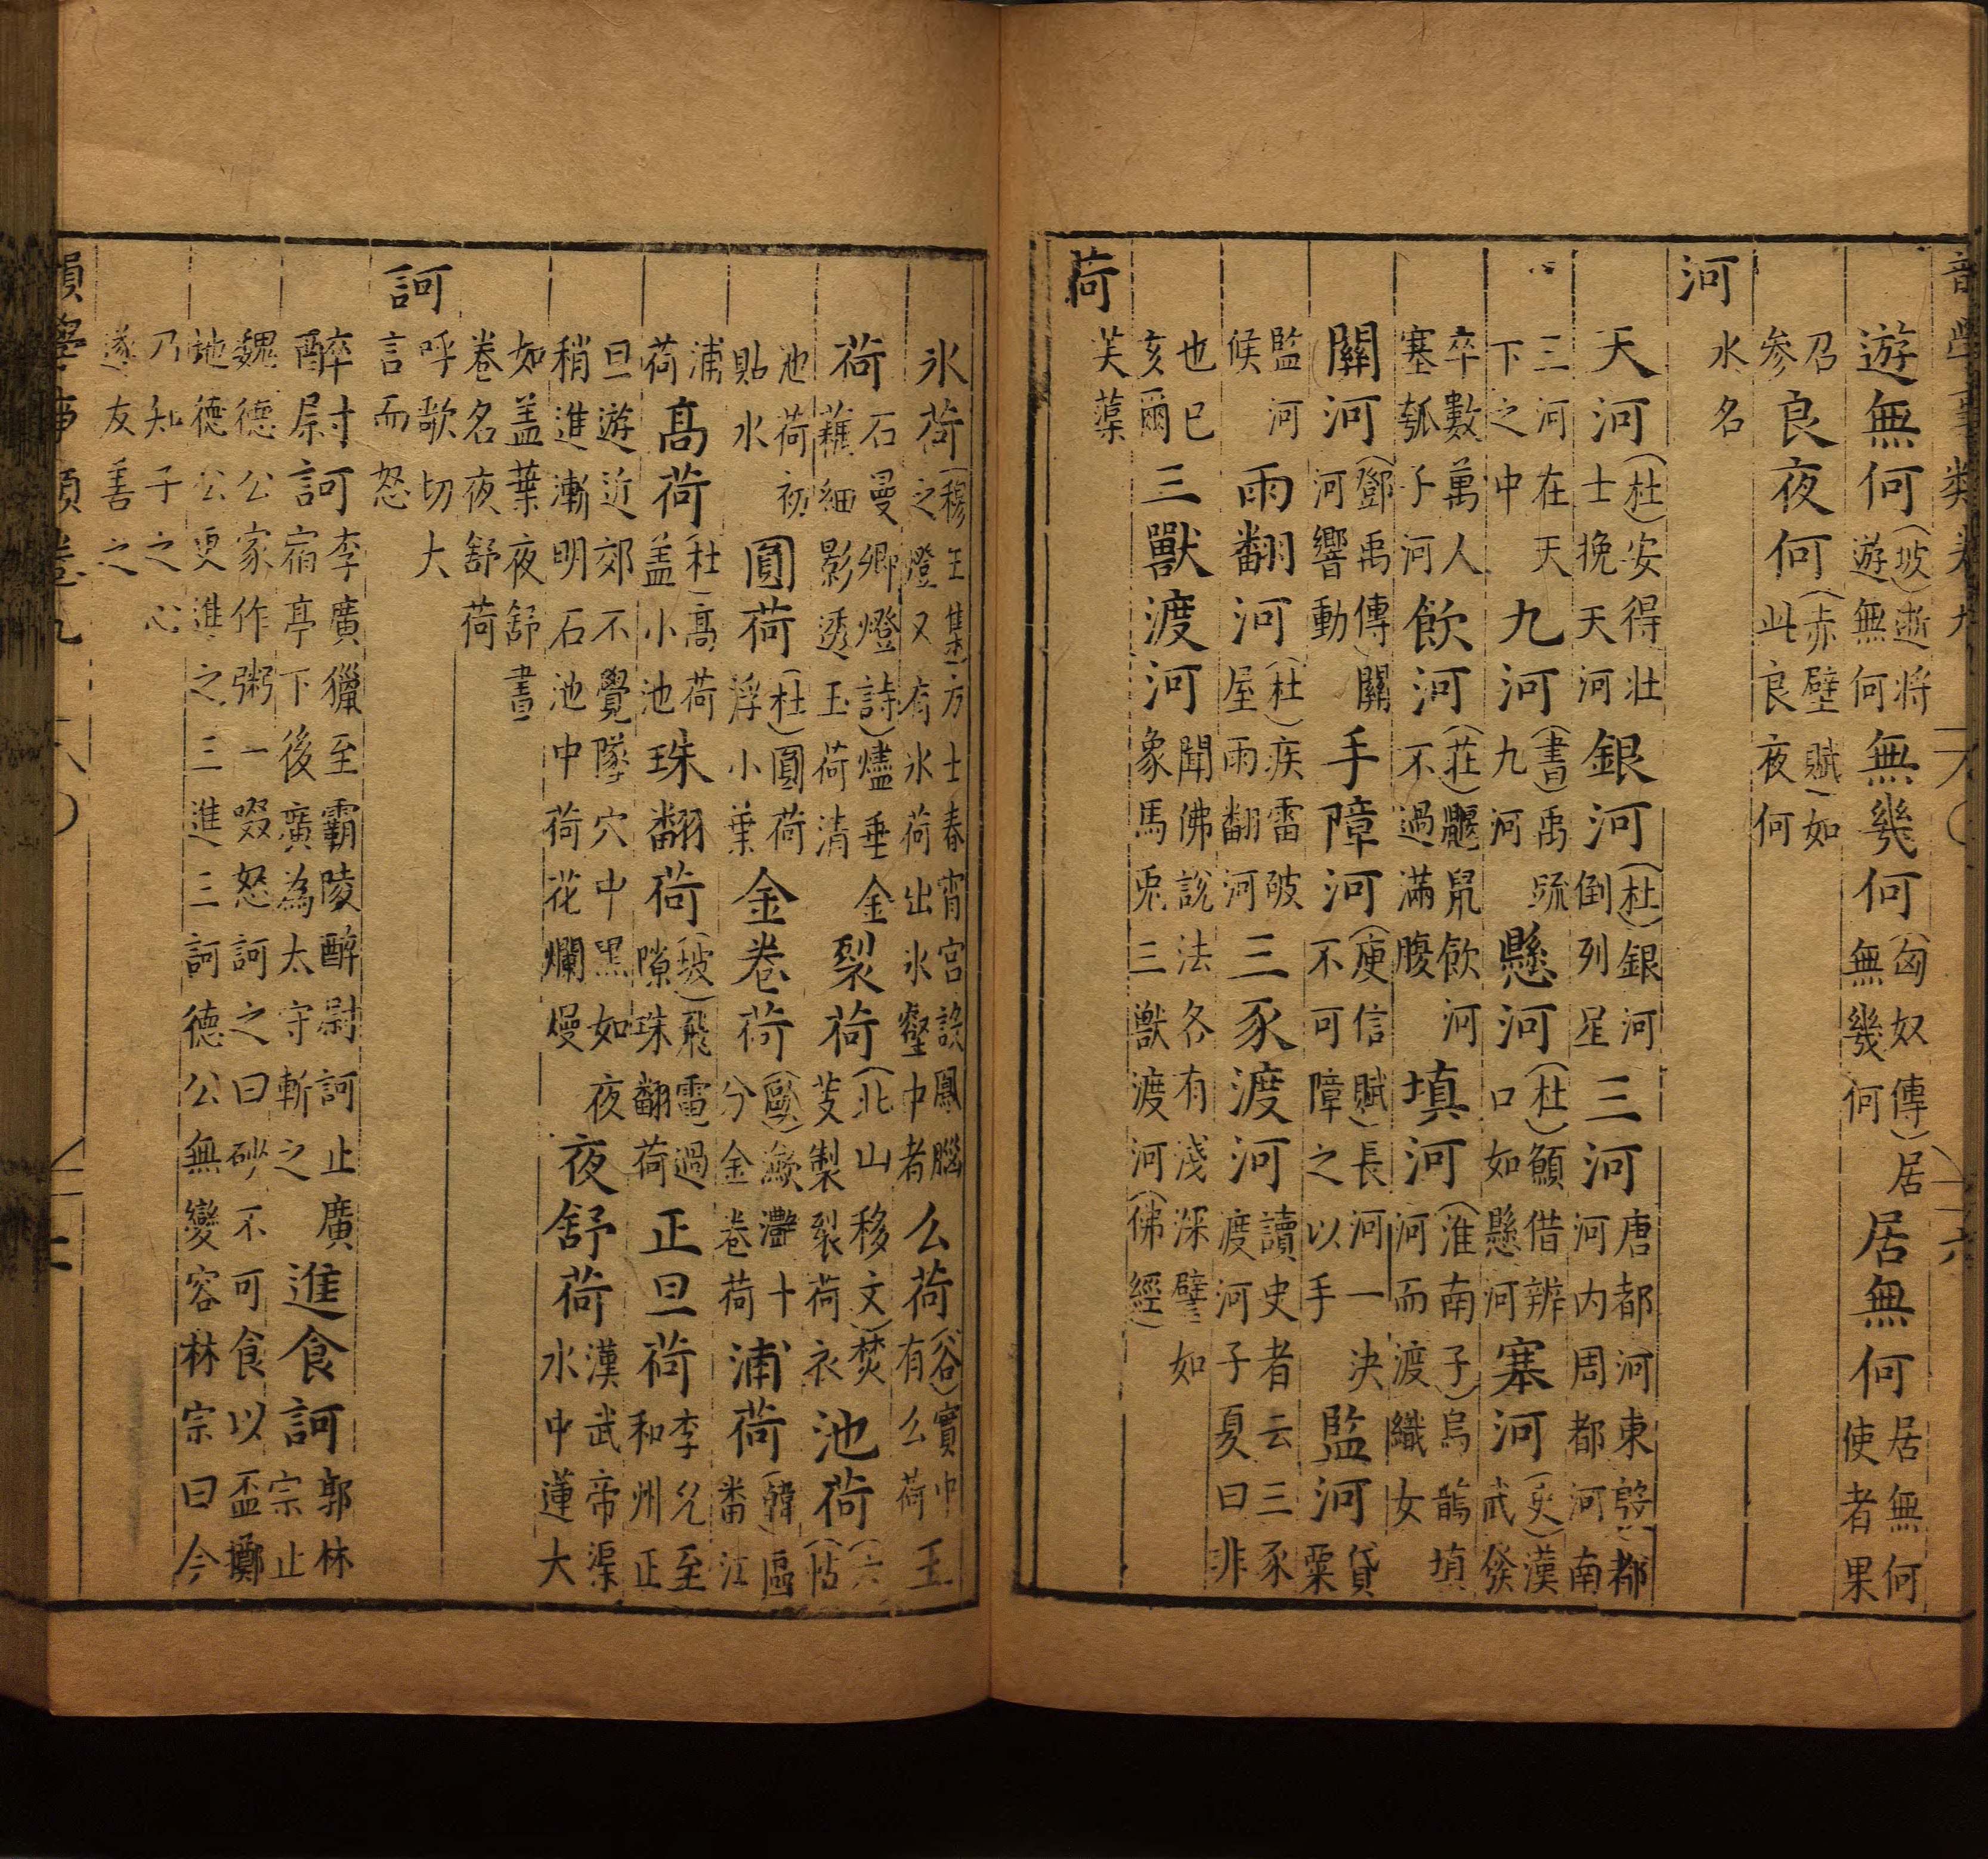 遊無何(坡)逝將遊無何無幾何(匈奴傳)居無幾何居無何居無何使者果
召參良夜何(赤壁賦)如此良夜何
河水名
天河(杜)安得壯士挽天河銀河(杜)銀河倒列星三河唐都河東殷都河内周都河南
三河在天下之中九河(書)禹疏九河懸河(杜)願借辨口如懸河塞河(史)漢武發
卒數萬人塞瓠子河飲河(莊)鼴鼠飲河不過滿腹填河(淮南子)烏鵲填河而渡織女
關河(鄧禹傳)關河響動手障河(庾信賦)長河一決不可障之以手監河貸粟
監河候雨翻河(杜)疾雷破屋雨翻河三豕渡河讀史者云三豕渡河子夏曰非
也已亥爾三獸渡河聞佛說法各有淺深譬如象馬兎三獸渡河(佛經)
荷芙蕖
氷荷(穆王集)方士春宵宮設鳳腦之燈又有氷荷出氷壑中者么荷(谷)實中有么荷玉
荷石曼卿燈詩)燼垂金藕細影透玉荷清裂荷(北山移文)焚芰製裂荷衣池荷(六帖)
池荷初貼水圓荷(杜)圓荷浮小葉金卷荷(歐)瀲灩十分金卷荷浦荷(韓)區番江
浦荷高荷(杜)高荷盖小池珠翻荷(坡)飛電過隙珠翻荷正旦荷李至和州正
旦遊近郊不覺墜穴中黑如夜稍進漸明石池中荷花爛熳夜舒荷漢武帝渠水中蓮大
如盖葉夜舒晝卷名夜舒荷
訶呼歌切大言而怒
醉尉訶李廣獵至霸陵醉尉訶止廣宿亭下後廣為太守斬之進食訶郭林宗止
魏德公家作粥一啜怒訶之曰砂不可食以盃擲地德公更進之三進三訶德公無變容林宗曰今
乃知子之心遂友善之